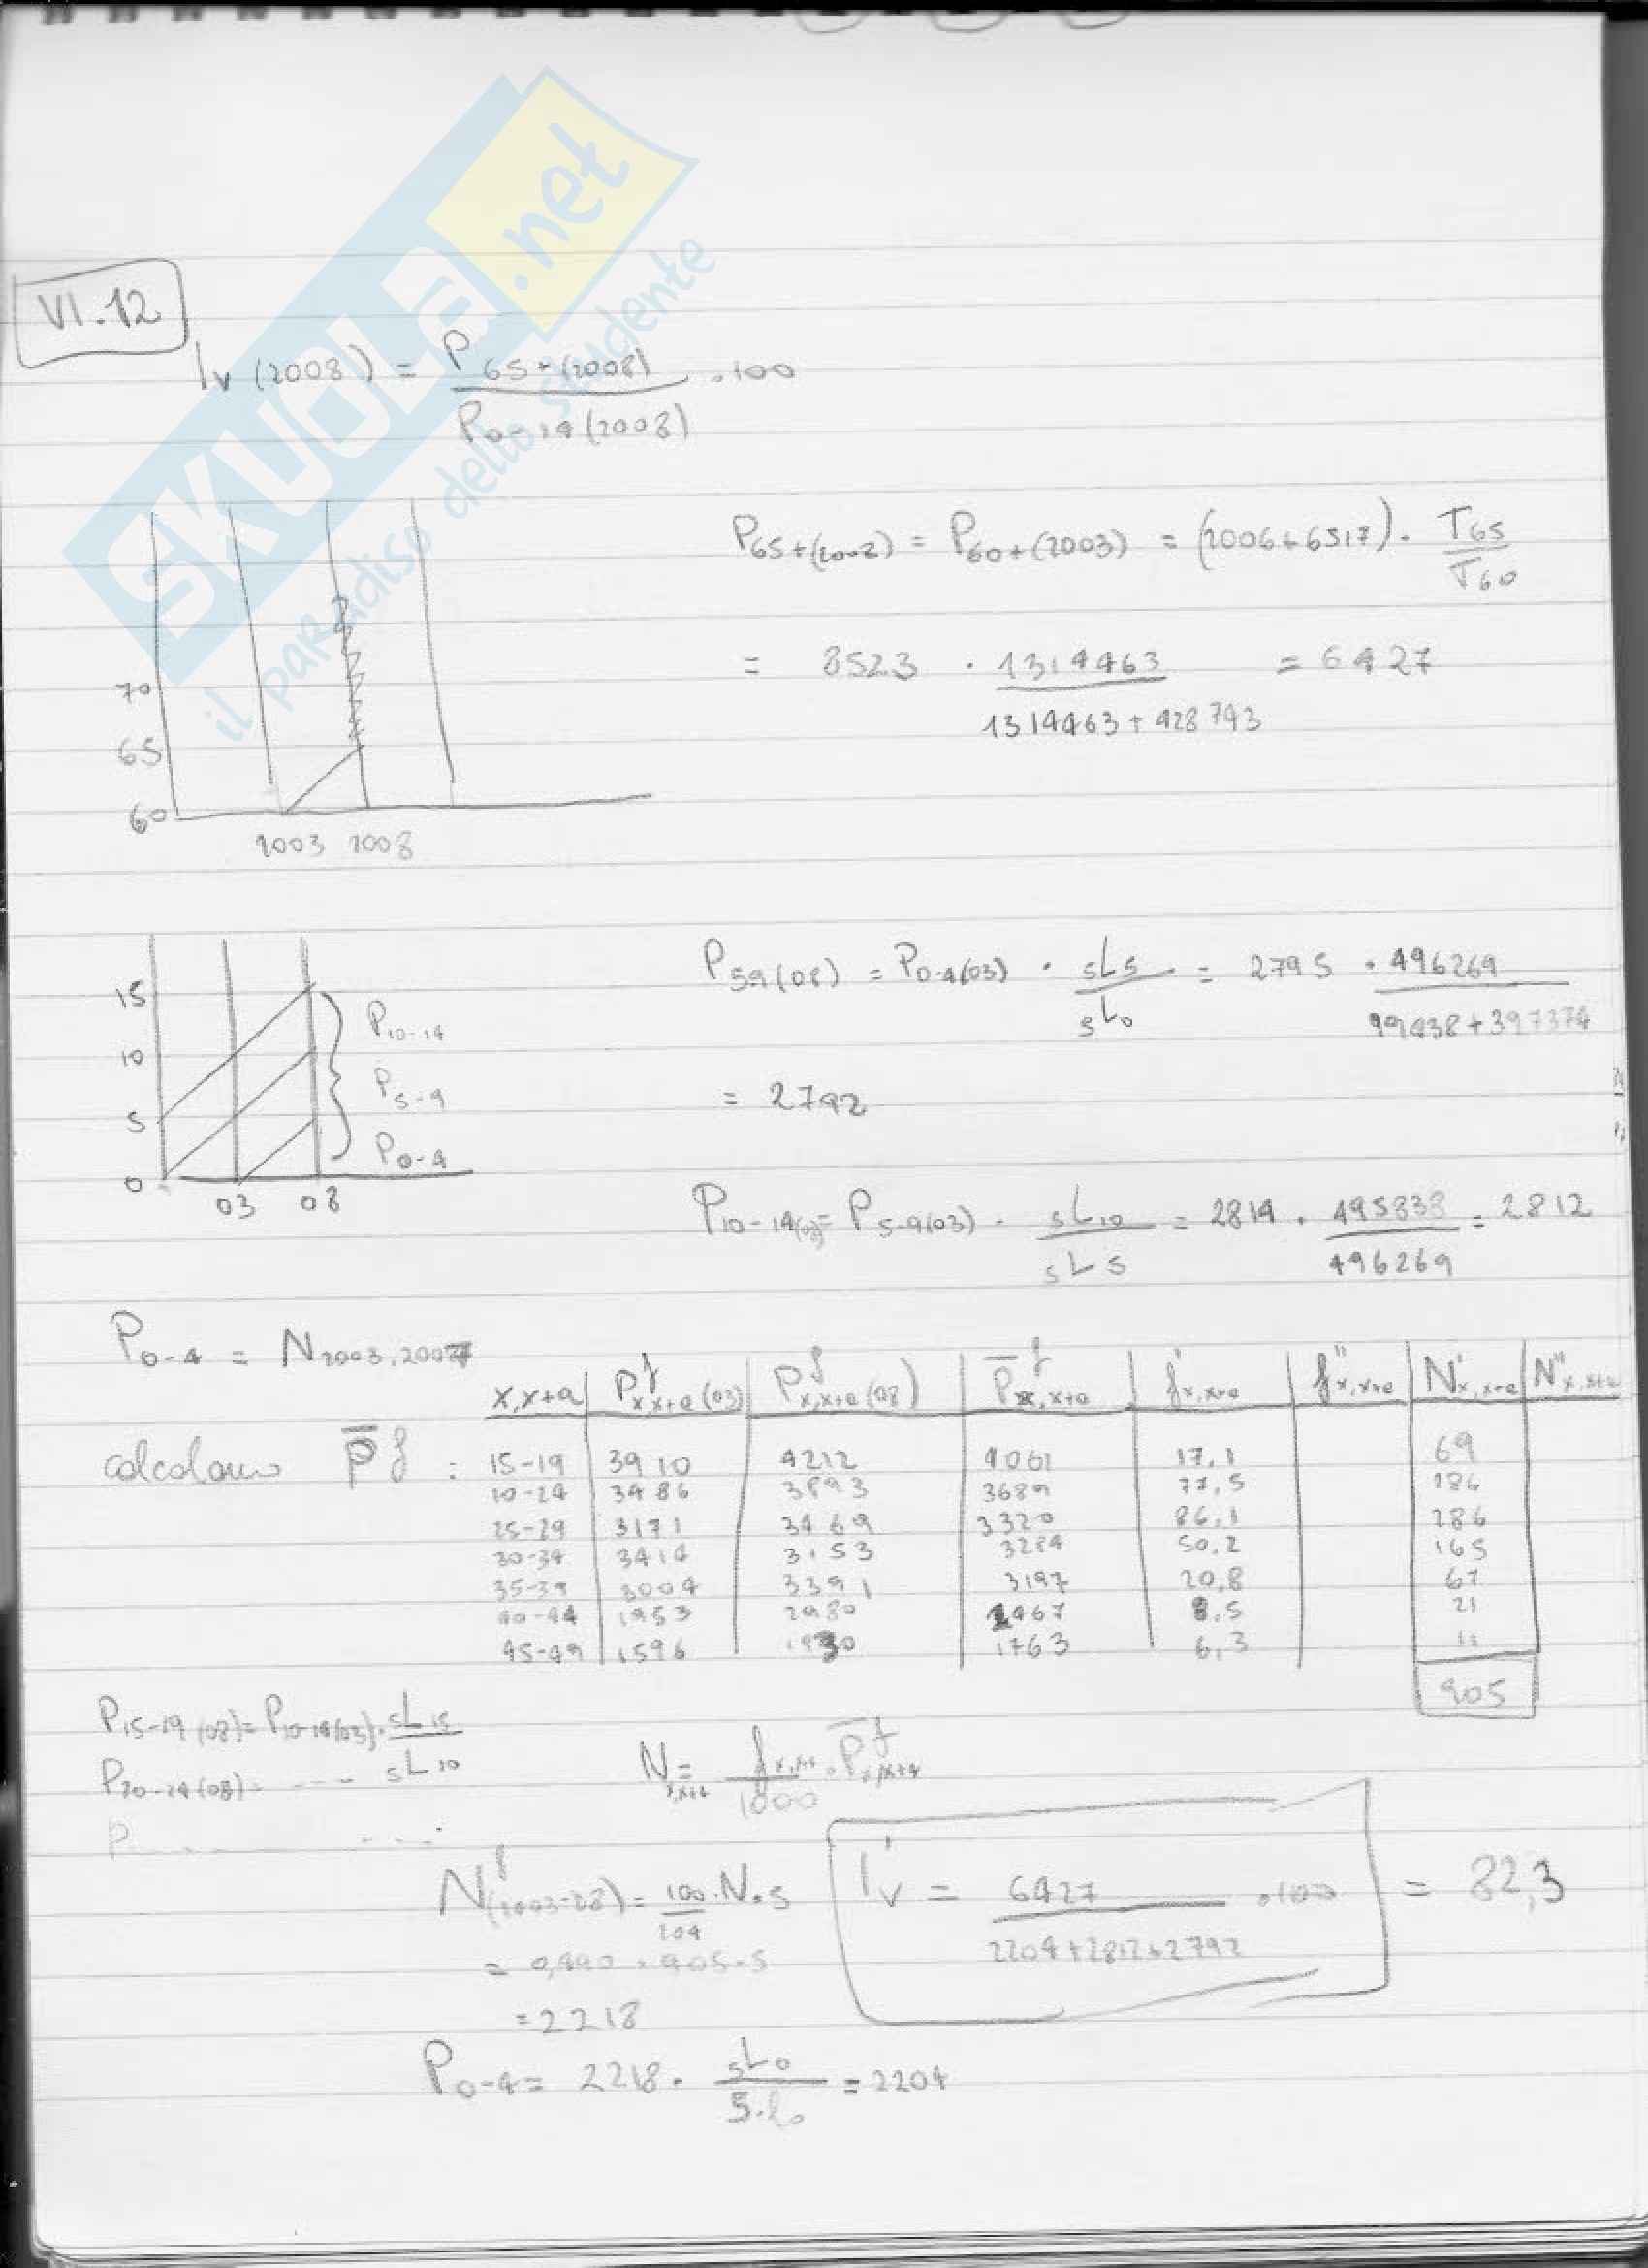 SKUOLA.net
il paradiso dello studente
VI.12
Iv (2008) = P65+(2008) / P0-14(2008) .100
P65+(2008) = P60+(2003) = (2006+6517). T65 / T60
= 8523 . 1314463 / 1314463+428793 = 6427
70
65
60
2003 2008
P5-9(08) = P0-4(03) . 5L5 / 5L0 = 2795 . 496269 / 99438+397374
= 2792
15
10
5
0
03 08
P10-14
P5-9
P0-4
P10-14(08)= P5-9(03) . 5L10 / 5L5 = 2814 . 495838 / 496269 = 2812
P0-4 = N2003,2007
calcolano P̄f :
x,x+a Pf x,x+a (03) Pf x,x+a (08) P̄f x,x+a f'x,x+a f''x,x+a N'x,x+a N''x,x+a
15-19 3910 4212 4061 17,1 69
20-24 3486 3893 3689 77,5 286
25-29 3171 3469 3320 86,1 286
30-34 3414 3153 3284 50,2 165
35-39 3004 3391 3197 20,8 67
40-44 1953 2980 2467 8,5 21
45-49 1596 1930 1763 6,3 11
905
P15-19 (08)= P10-14(03). 5L15 / 5L10
P20-24(08)= ---
P
Nx,x+a = fx,x+a / 1000 . P̄f x,x+a
Nf(2003-08) = 100 / 204 . N.5
= 0,490 . 905.5
= 2218
I'v = 6427 / 2204+2812+2792 .100 = 82,3
P0-4 = 2218 . 5L0 / 5.l0 = 2204